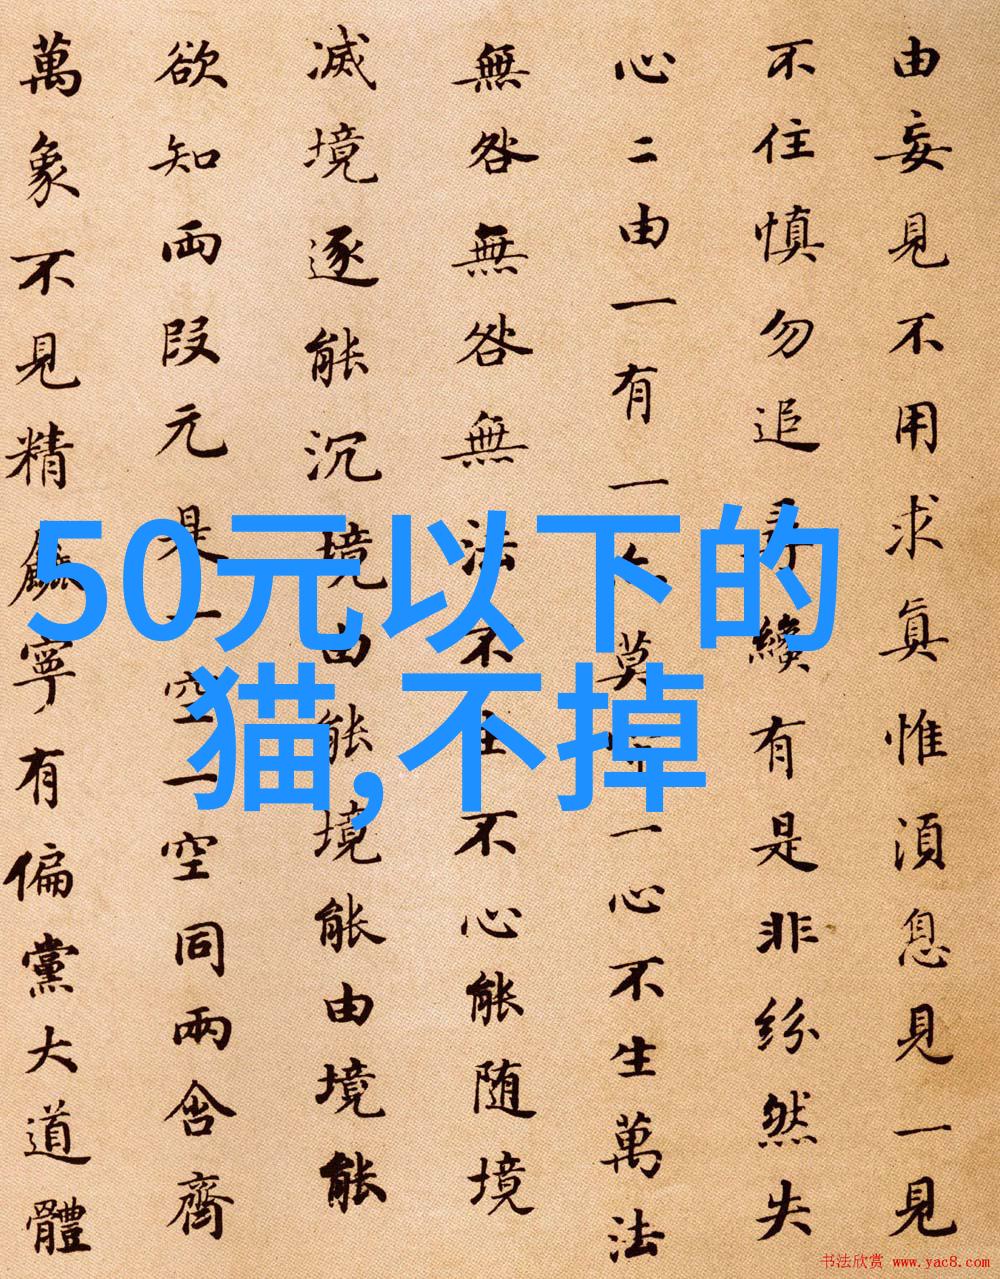 由妄見不用求眞惟湏息見一見
不住慎勿追尋纔有是非紛然失
心二由一有一亦莫守一心不生萬法
無咎無咎無法不生不心能随境
滅境逐能沉境由能境能由境能
欲知兩段元是一空一空同兩含齊
萬象不見精麤寧有偏黨大道體
50元以下的
猫,不掉
书法欣赏 www.yac8.com